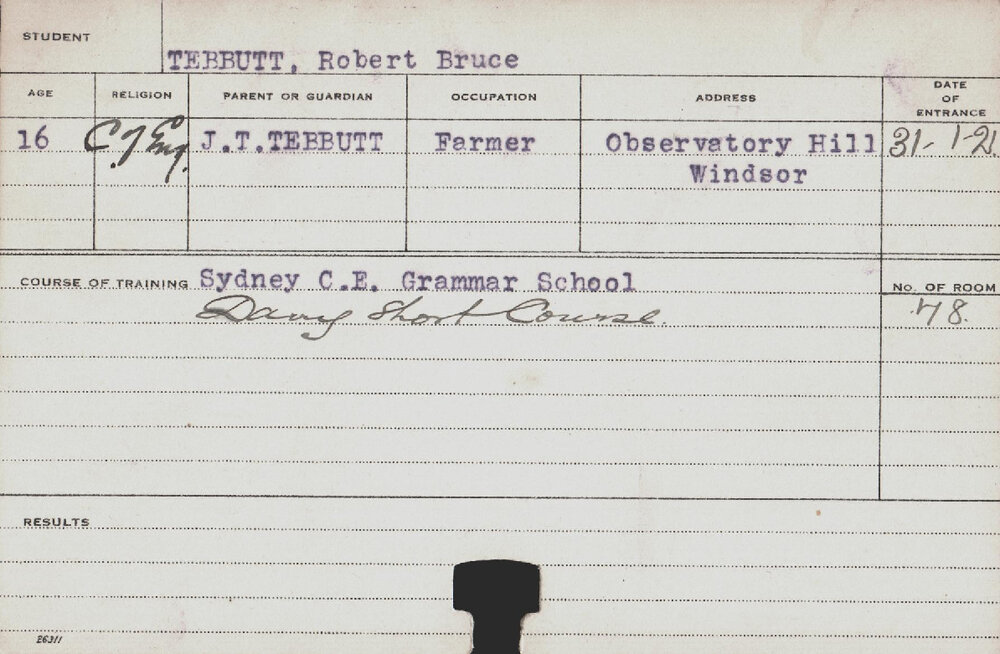 STUDENT
TEBBUTT, Robert Bruce
AGE RELIGION PARENT OR GUARDIAN OCCUPATION ADDRESS DATE OF ENTRANCE
16 C. of Eng. J.T.TEBBUTT Farmer Observatory Hill 31-1-21.
Windsor
COURSE OF TRAINING Sydney C.E. Grammar School No. OF ROOM
Dairy Short Course. 78.
RESULTS
E6311